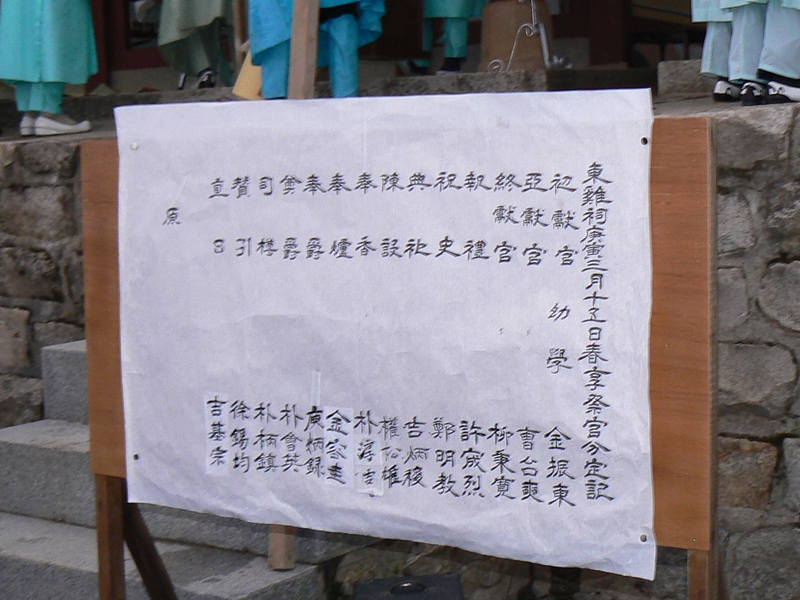 東雞祠庚寅三月十五日春享祭官分定記
初獻官 幼學 金振東
亞獻官 曺台奭
終獻官 柳秉寬
執禮 許宬烈
祝史 鄭明教
典祀 吉炳稜
陳設 權松雄
奉香 朴淳吉
奉爐 金容圭
奉爵 庾炳録
奠爵 朴會英
司樽 朴柄鎮
贊引 徐錫均
直日 吉基宗
原